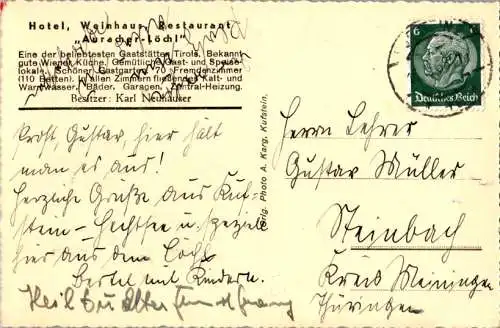 Hotel, Weinhaus, Restaurant
"Auracher-Löchl"
Eine der beliebtesten Gaststätten Tirols. Bekannt
gute Wiener Küche. Gemütliche Gast- und Speise-
lokale. Schöner Gastgarten. 70 Fremdenzimmer
(110 Betten). In allen Zimmern fließendes Kalt- und
Warmwasser. Bäder, Garagen, Zentral-Heizung.
Besitzer: Karl Neuhauser
Prost Gustav, hier hält
man es aus!
Herzliche Grüße aus Kuf-
stein - Hechtsee u. speziell
hier aus dem Löchl
Bertel mit Kindern.
Heil
Orig. Photo A. Karg, Kufstein.
6 6
Deutsches Reich
Herrn Lehrer
Gustav Müller
Steinbach
Kreis Meiningen
Thüringen